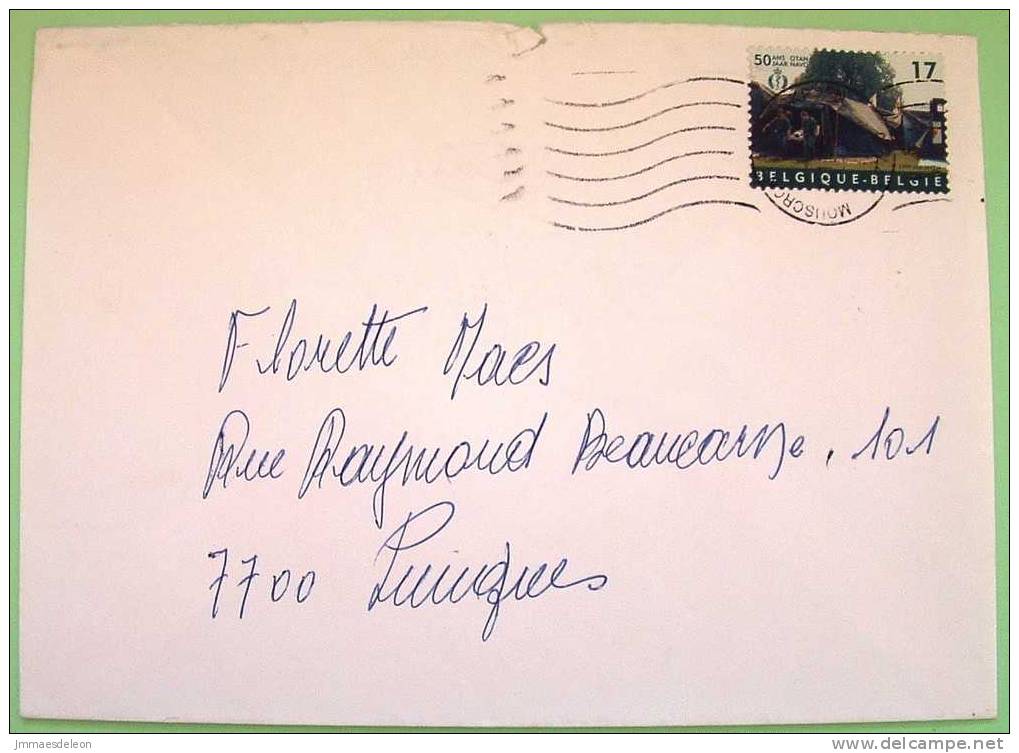 50 ANS OTAN 17
JAAR NAVO
BELGIQUE-BELGIE
MOUSCRO
Florette Maes
Rue Raymond Beaucarne, 101
7700 Luingnes
jmmaesdeleon
www.delcampe.net